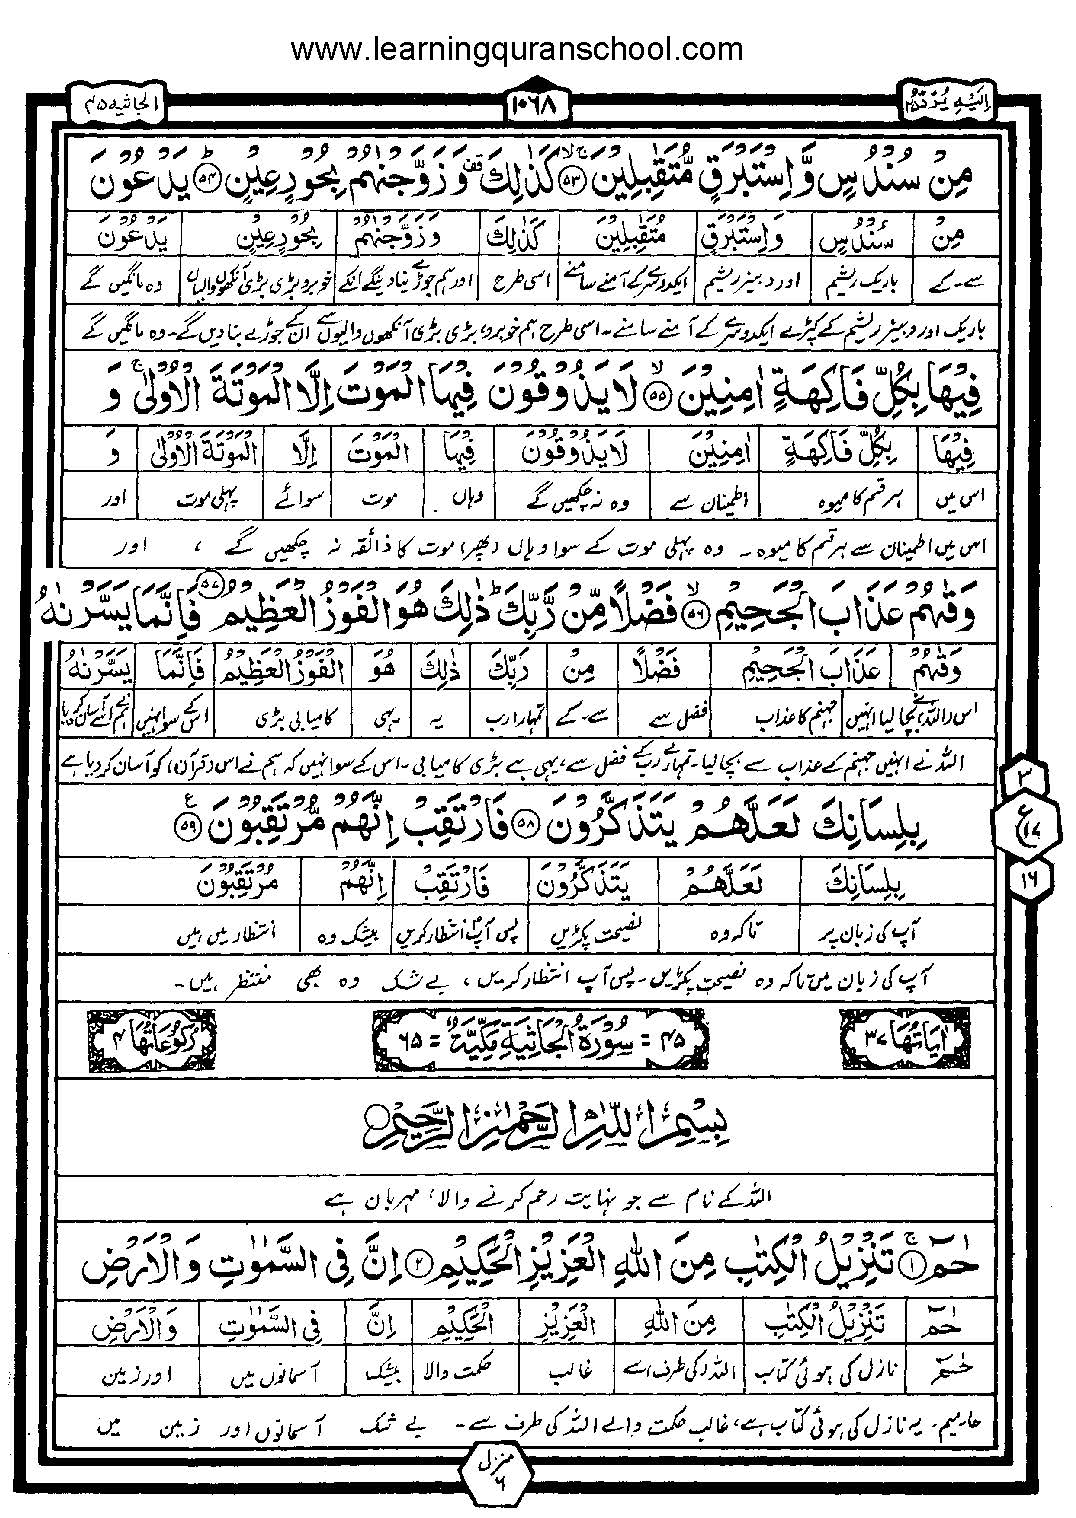 www.learningquranschool.com
اِلَیْهِ یُرَدُّ ۲۵
۱۰۶۸
الجاثیه ۴۵
مِنْ سُنْدُسٍ وَّاِسْتَبْرَقٍ مُّتَقٰبِلِيْنَ ۵۳ كَذٰلِكَ وَزَوَّجْنٰهُمْ بِحُوْرٍ عِيْنٍ ۵۴ يَدْعُوْنَ
مِنْ سُنْدُسٍ وَاِسْتَبْرَقٍ مُتَقٰبِلِيْنَ كَذٰلِكَ وَزَوَّجْنٰهُمْ بِحُوْرٍعِيْنٍ يَدْعُوْنَ
سے۔کے باریک ریشم اور دبیز ریشم ایکدوسرےکے آمنے سامنے اسی طرح اور ہم جوڑے بنادینگے انکے خوبرو بڑی بڑی آنکھوں والیاں وہ مانگیں گے
باریک اور دبیز ریشم کے کپڑے ایکدوسرے کے آمنے سامنے۔ اسی طرح ہم خوبرو، بڑی بڑی آنکھوں والیوں سے ان کے جوڑے بنادیں گے۔ وہ مانگیں گے
فِيْهَا بِكُلِّ فَاكِهَةٍ اٰمِنِيْنَ ۵۵ لَا يَذُوْقُوْنَ فِيْهَا الْمَوْتَ اِلَّا الْمَوْتَةَ الْاُوْلٰى وَ
فِيْهَا بِكُلِّ فَاكِهَةٍ اٰمِنِيْنَ لَا يَذُوْقُوْنَ فِيْهَا الْمَوْتَ اِلَّا الْمَوْتَةَ الْاُوْلٰى وَ
اس میں ہر قسم کا میوہ اطمینان سے وہ نہ چکھیں گے وہاں موت سوائے پہلی موت اور
اس میں اطمینان سے ہر قسم کا میوہ۔ وہ پہلی موت کے سوا وہاں (پھر) موت کا ذائقہ نہ چکھیں گے ، اور
وَقٰىهُمْ عَذَابَ الْجَحِيْمِ ۵۶ فَضْلًا مِّنْ رَّبِّكَ ذٰلِكَ هُوَ الْفَوْزُ الْعَظِيْمُ ۵۷ فَاِنَّمَا يَسَّرْنٰهُ
وَقٰىهُمْ عَذَابَ الْجَحِيْمِ فَضْلًا مِنْ رَبِّكَ ذٰلِكَ هُوَ الْفَوْزُ الْعَظِيْمُ فَاِنَّمَا يَسَّرْنٰهُ
اس (اللہ) نے بچالیا انہیں جہنم کا عذاب فضل سے سے۔کے تمہارا رب یہ یہی کامیابی بڑی اس کے سوا نہیں ہم نے اسے آسان کردیا
اللہ نے انہیں جہنم کے عذاب سے بچالیا۔ تمہارے رب کے فضل سے، یہی ہے بڑی کامیابی۔ اس کے سوا نہیں کہ ہم نے اس (قرآن) کو آسان کردیا ہے
بِلِسَانِكَ لَعَلَّهُمْ يَتَذَكَّرُوْنَ ۵۸ فَارْتَقِبْ اِنَّهُمْ مُّرْتَقِبُوْنَ ۵۹
۳
ع
۱۷
۱۶
بِلِسَانِكَ لَعَلَّهُمْ يَتَذَكَّرُوْنَ فَارْتَقِبْ اِنَّهُمْ مُرْتَقِبُوْنَ
آپ کی زبان پر تاکہ وہ نصیحت پکڑیں پس آپ انتظار کریں بیشک وہ انتظار میں ہیں
آپ کی زبان میں تاکہ وہ نصیحت پکڑیں۔ پس آپ انتظار کریں، بے شک وہ بھی منتظر ہیں۔
اٰيَاتُهَا ۳۷ ۴۵ = سُوْرَةُ الْجَاثِيَةِ مَكِّيَّةٌ = ۶۵ رُكُوْعَاتُهَا ۴
بِسْمِ اللّٰهِ الرَّحْمٰنِ الرَّحِيْمِ
اللہ کے نام سے جو نہایت رحم کرنے والا، مہربان ہے
حٰمٓ ۱ تَنْزِيْلُ الْكِتٰبِ مِنَ اللّٰهِ الْعَزِيْزِ الْحَكِيْمِ ۲ اِنَّ فِى السَّمٰوٰتِ وَالْاَرْضِ
حٰمٓ تَنْزِيْلُ الْكِتٰبِ مِنَ اللّٰهِ الْعَزِيْزِ الْحَكِيْمِ اِنَّ فِى السَّمٰوٰتِ وَالْاَرْضِ
حٰمٓ نازل کی ہوئی کتاب اللہ کی طرف سے غالب حکمت والا بیشک آسمانوں میں اور زمین
حا۔میم۔ یہ نازل کی ہوئی کتاب ہے، غالب حکمت والے اللہ کی طرف سے۔ بے شک آسمانوں اور زمین میں
منزل ۶